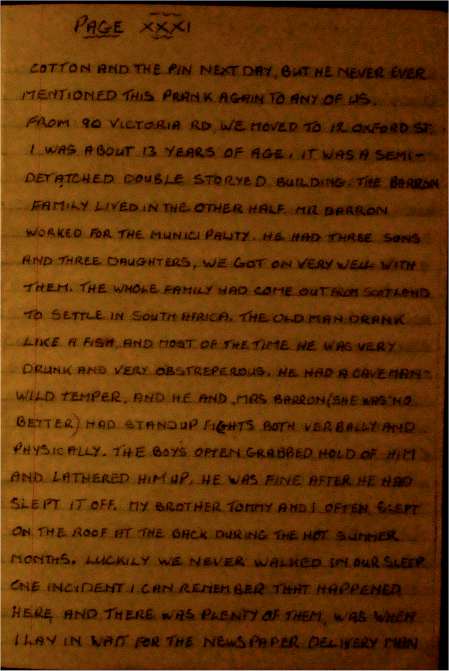 PAGE XXXI
COTTON AND THE PIN NEXT DAY, BUT HE NEVER EVER
MENTIONED THIS PRANK AGAIN TO ANY OF US.
FROM 90 VICTORIA RD, WE MOVED TO 12 OXFORD ST.
I WAS ABOUT 13 YEARS OF AGE. IT WAS A SEMI-
DETATCHED DOUBLE STORYED BUILDING. THE BARRON
FAMILY LIVED IN THE OTHER HALF. MR BARRON
WORKED FOR THE MUNICIPALITY. HE HAD THREE SONS
AND THREE DAUGHTERS, WE GOT ON VERY WELL WITH
THEM. THE WHOLE FAMILY HAD COME OUT FROM SCOTLAND
TO SETTLE IN SOUTH AFRICA. THE OLD MAN DRANK
LIKE A FISH, AND MOST OF THE TIME HE WAS VERY
DRUNK AND VERY OBSTREPEROUS. HE HAD A CAVEMAN
WILD TEMPER, AND HE AND MRS BARRON (SHE WAS NO
BETTER) HAD STANDUP FIGHTS BOTH VERBALLY AND
PHYSICALLY. THE BOYS OFTEN GRABBED HOLD OF HIM
AND LATHERED HIM UP. HE WAS FINE AFTER HE HAD
SLEPT IT OFF. MY BROTHER TOMMY AND I OFTEN SLEPT
ON THE ROOF AT THE BACK DURING THE HOT SUMMER
MONTHS. LUCKILY WE NEVER WALKED IN OUR SLEEP.
ONE INCIDENT I CAN REMEMBER THAT HAPPENED
HERE, AND THERE WAS PLENTY OF THEM, WAS WHEN
I LAY IN WAIT FOR THE NEWSPAPER DELIVERY MAN